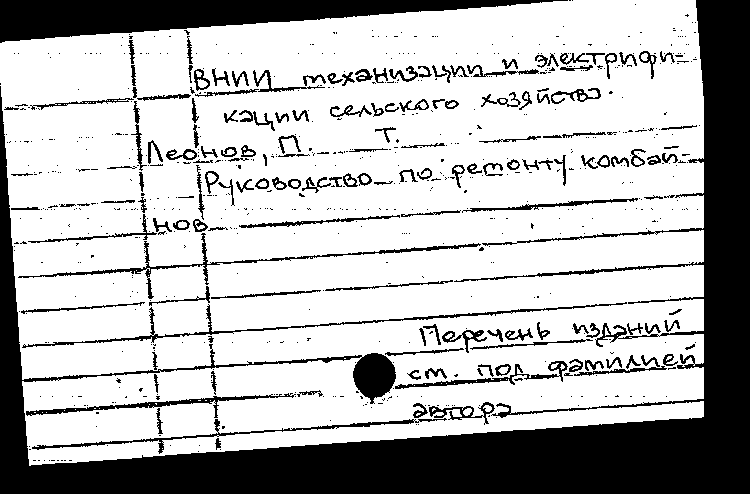 ВНИИ механизации и электрифи-
кации сельского хозяйства.
Леонов, П. Т.
Руководство по ремонту комбай-
нов
Перечень изданий
см. под фамилией
автора